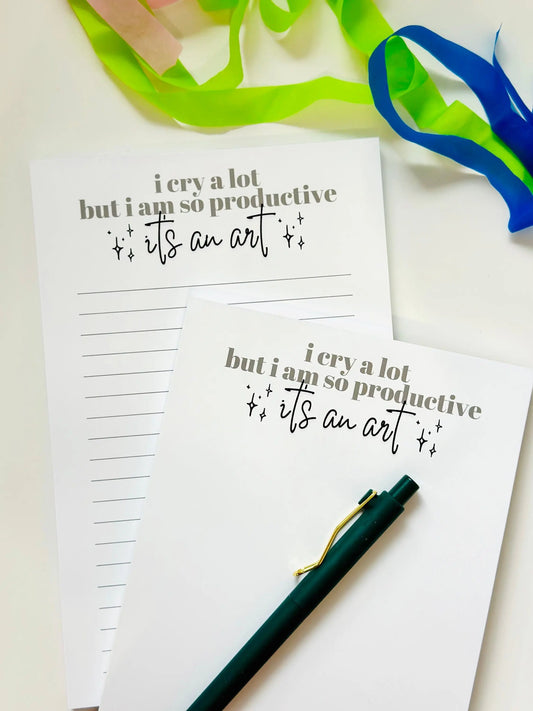 i cry a lot
but i am so productive
it's an art
i cry a lot
but i am so productive
it's an art